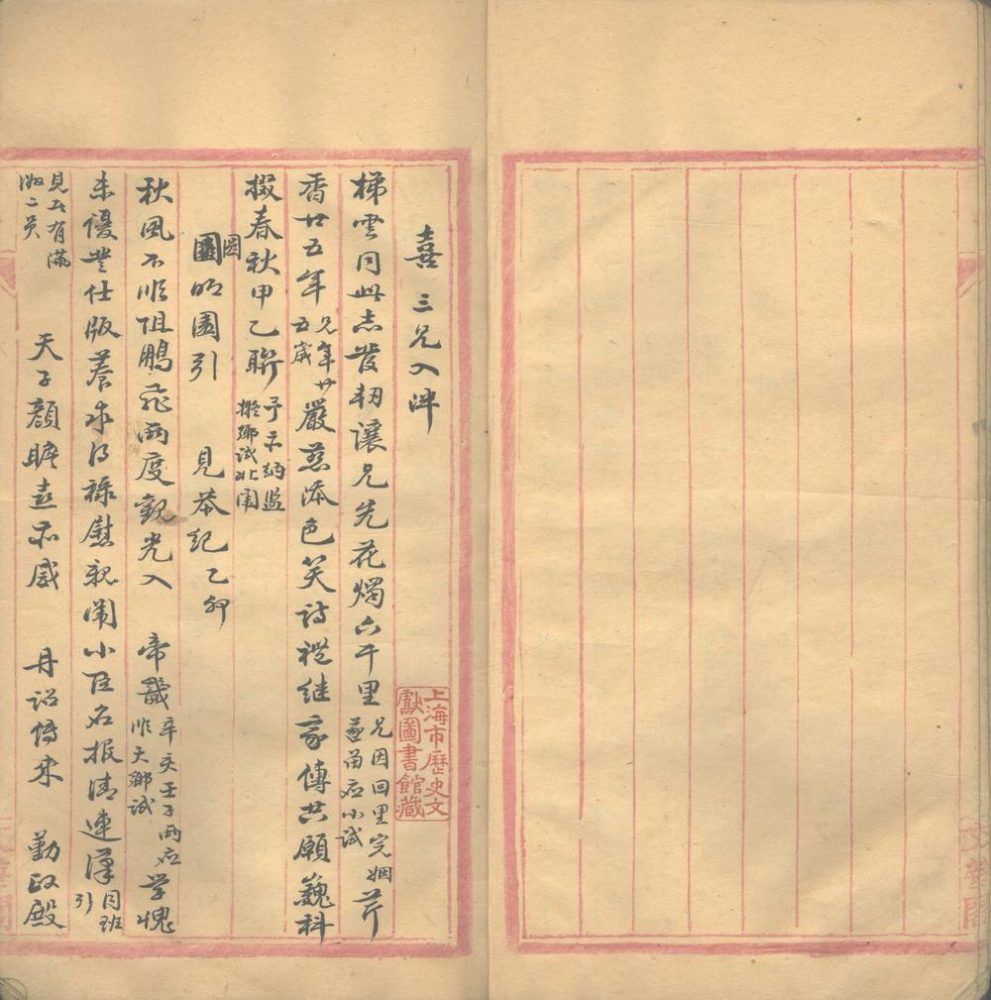 喜三兄入泮
梯雲同此志發軔讓兄先花燭六千里兄因回里完姻並留应小試芹
香廿五年兄年廿五歲嚴慈添色笑詩禮继家傳共願巍科
掇春秋甲乙聯予示納監擬鄉試北闈
圓明園引見恭紀乙卯
圆
秋風不順阻鵬飛兩度觀光入帝畿辛亥壬子两应順天鄉試学愧
未優登仕版養求得祿慰親闈小臣名报清連漢同班引
見五有滿漢二員天子顔瞻喜不威丹诏傳来勤政殿
上海市歷史文
獻圖書館藏